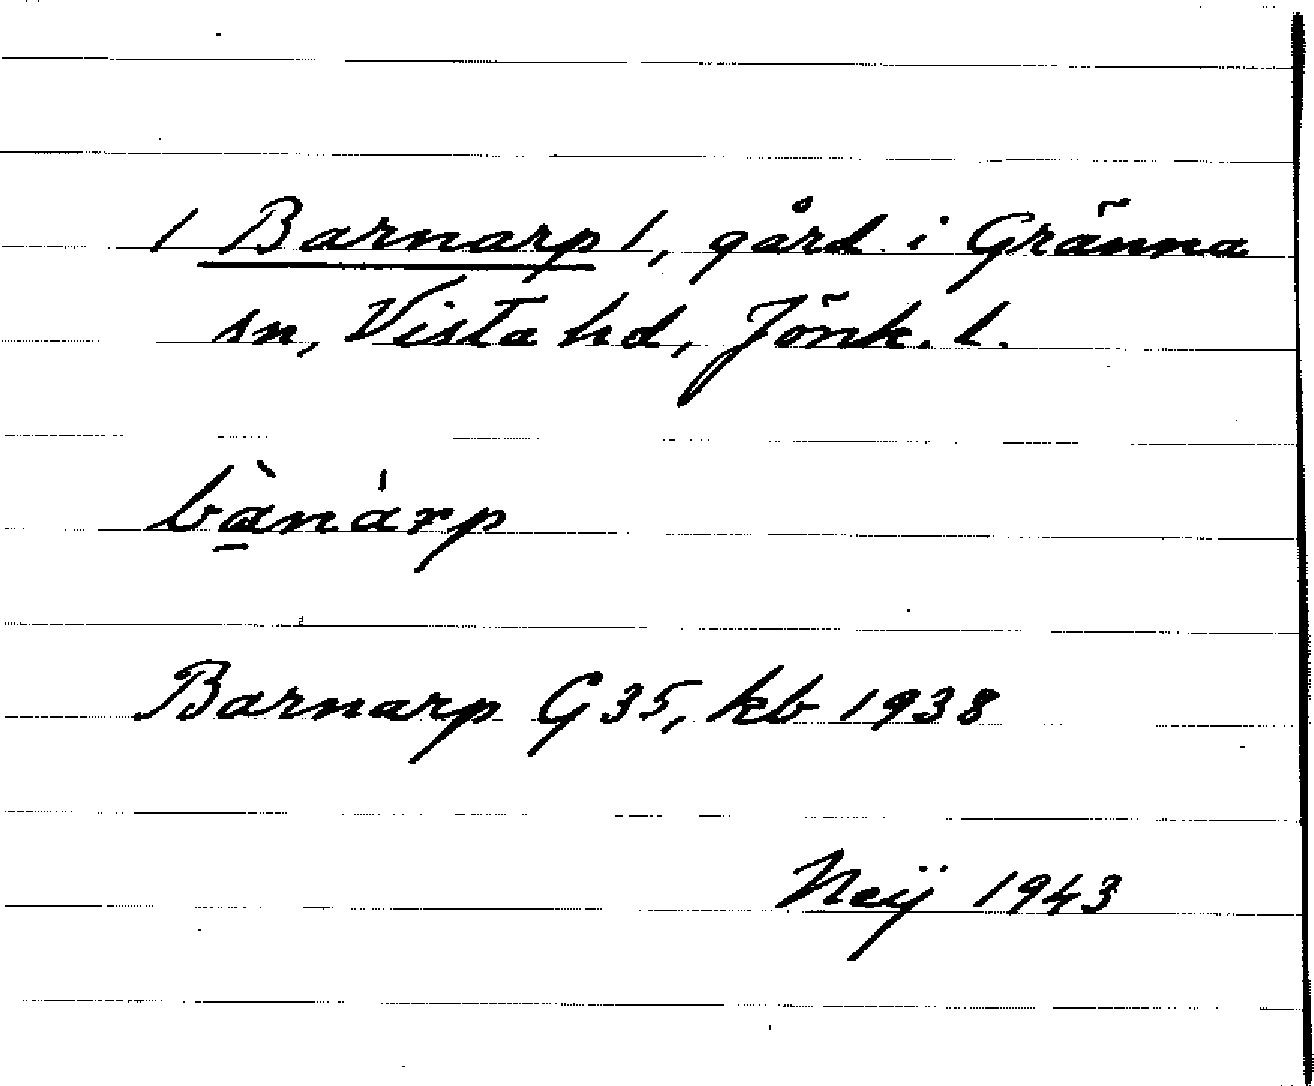 / Barnarp /, gård i Gränna
sn, Vista hd, Jönk. l.
bà̱nárp
Barnarp G 35, kb 1938
Neij 1943